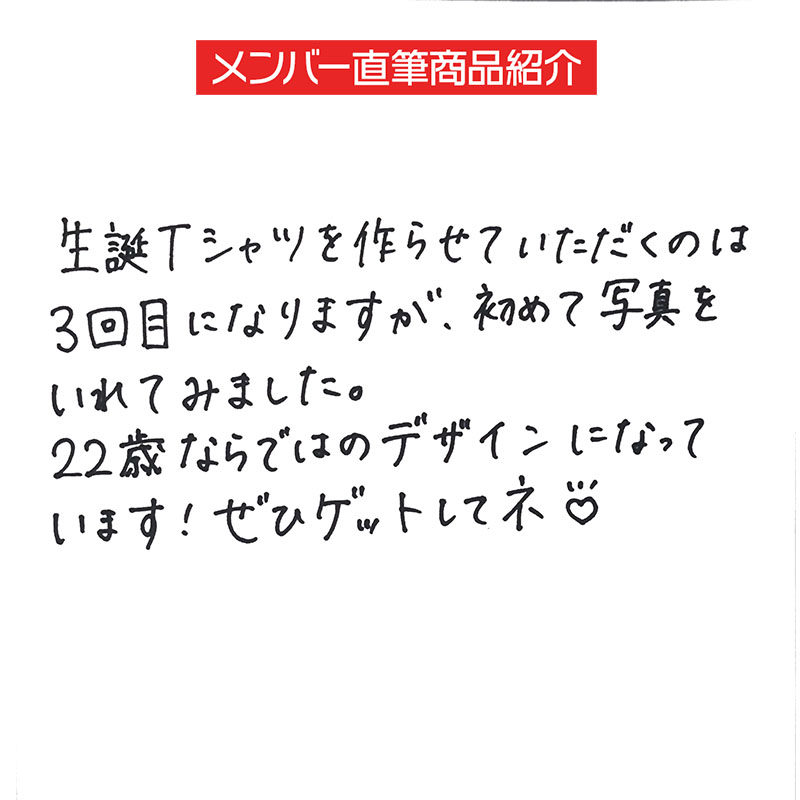 メンバー直筆商品紹介
生誕Tシャツを作らせていただくのは
3回目になりますが、初めて写真を
いれてみました。
22歳ならではのデザインになって
います!ぜひゲットしてネ♡